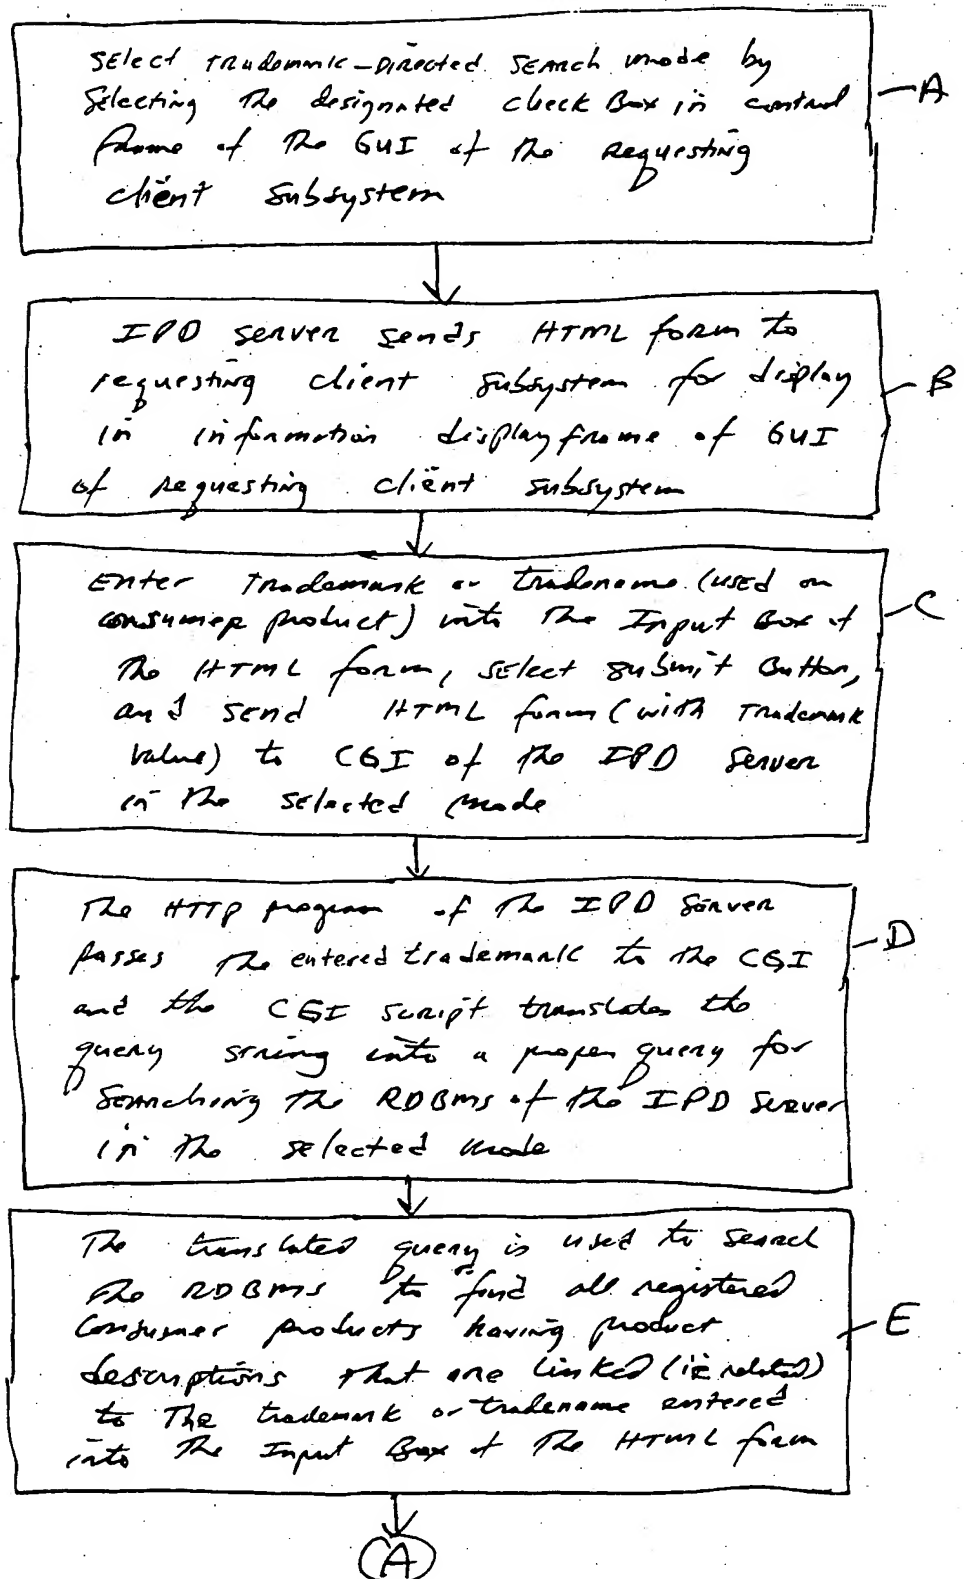 Select Trademark-Directed Search mode by
Selecting The designated check Box in control
frame of The GUI of The Requesting
client Subsystem
A
IPD Server sends HTML form to
requesting client subsystem for display
in information display frame of GUI
of Requesting client subsystem
B
Enter Trademark or tradename (used on
consumer product) into The Input Box of
The HTML form, select submit Button,
and send HTML form (with Trademark
value) to CGI of The IPD Server
in The selected mode
C
The HTTP program of The IPD Server
Passes The entered trademark to The CGI
and the CGI script translates the
query string into a proper query for
Searching The RDBMS of the IPD Server
in The selected mode
D
The translated query is used to search
The RDBMS to find all registered
Consumer products having product
descriptions that are linked (ie related)
to The trademark or tradename entered
into The Input Box of The HTML form
E
A